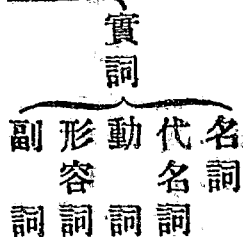 實詞
名詞
代名詞
動詞
形容詞
副詞